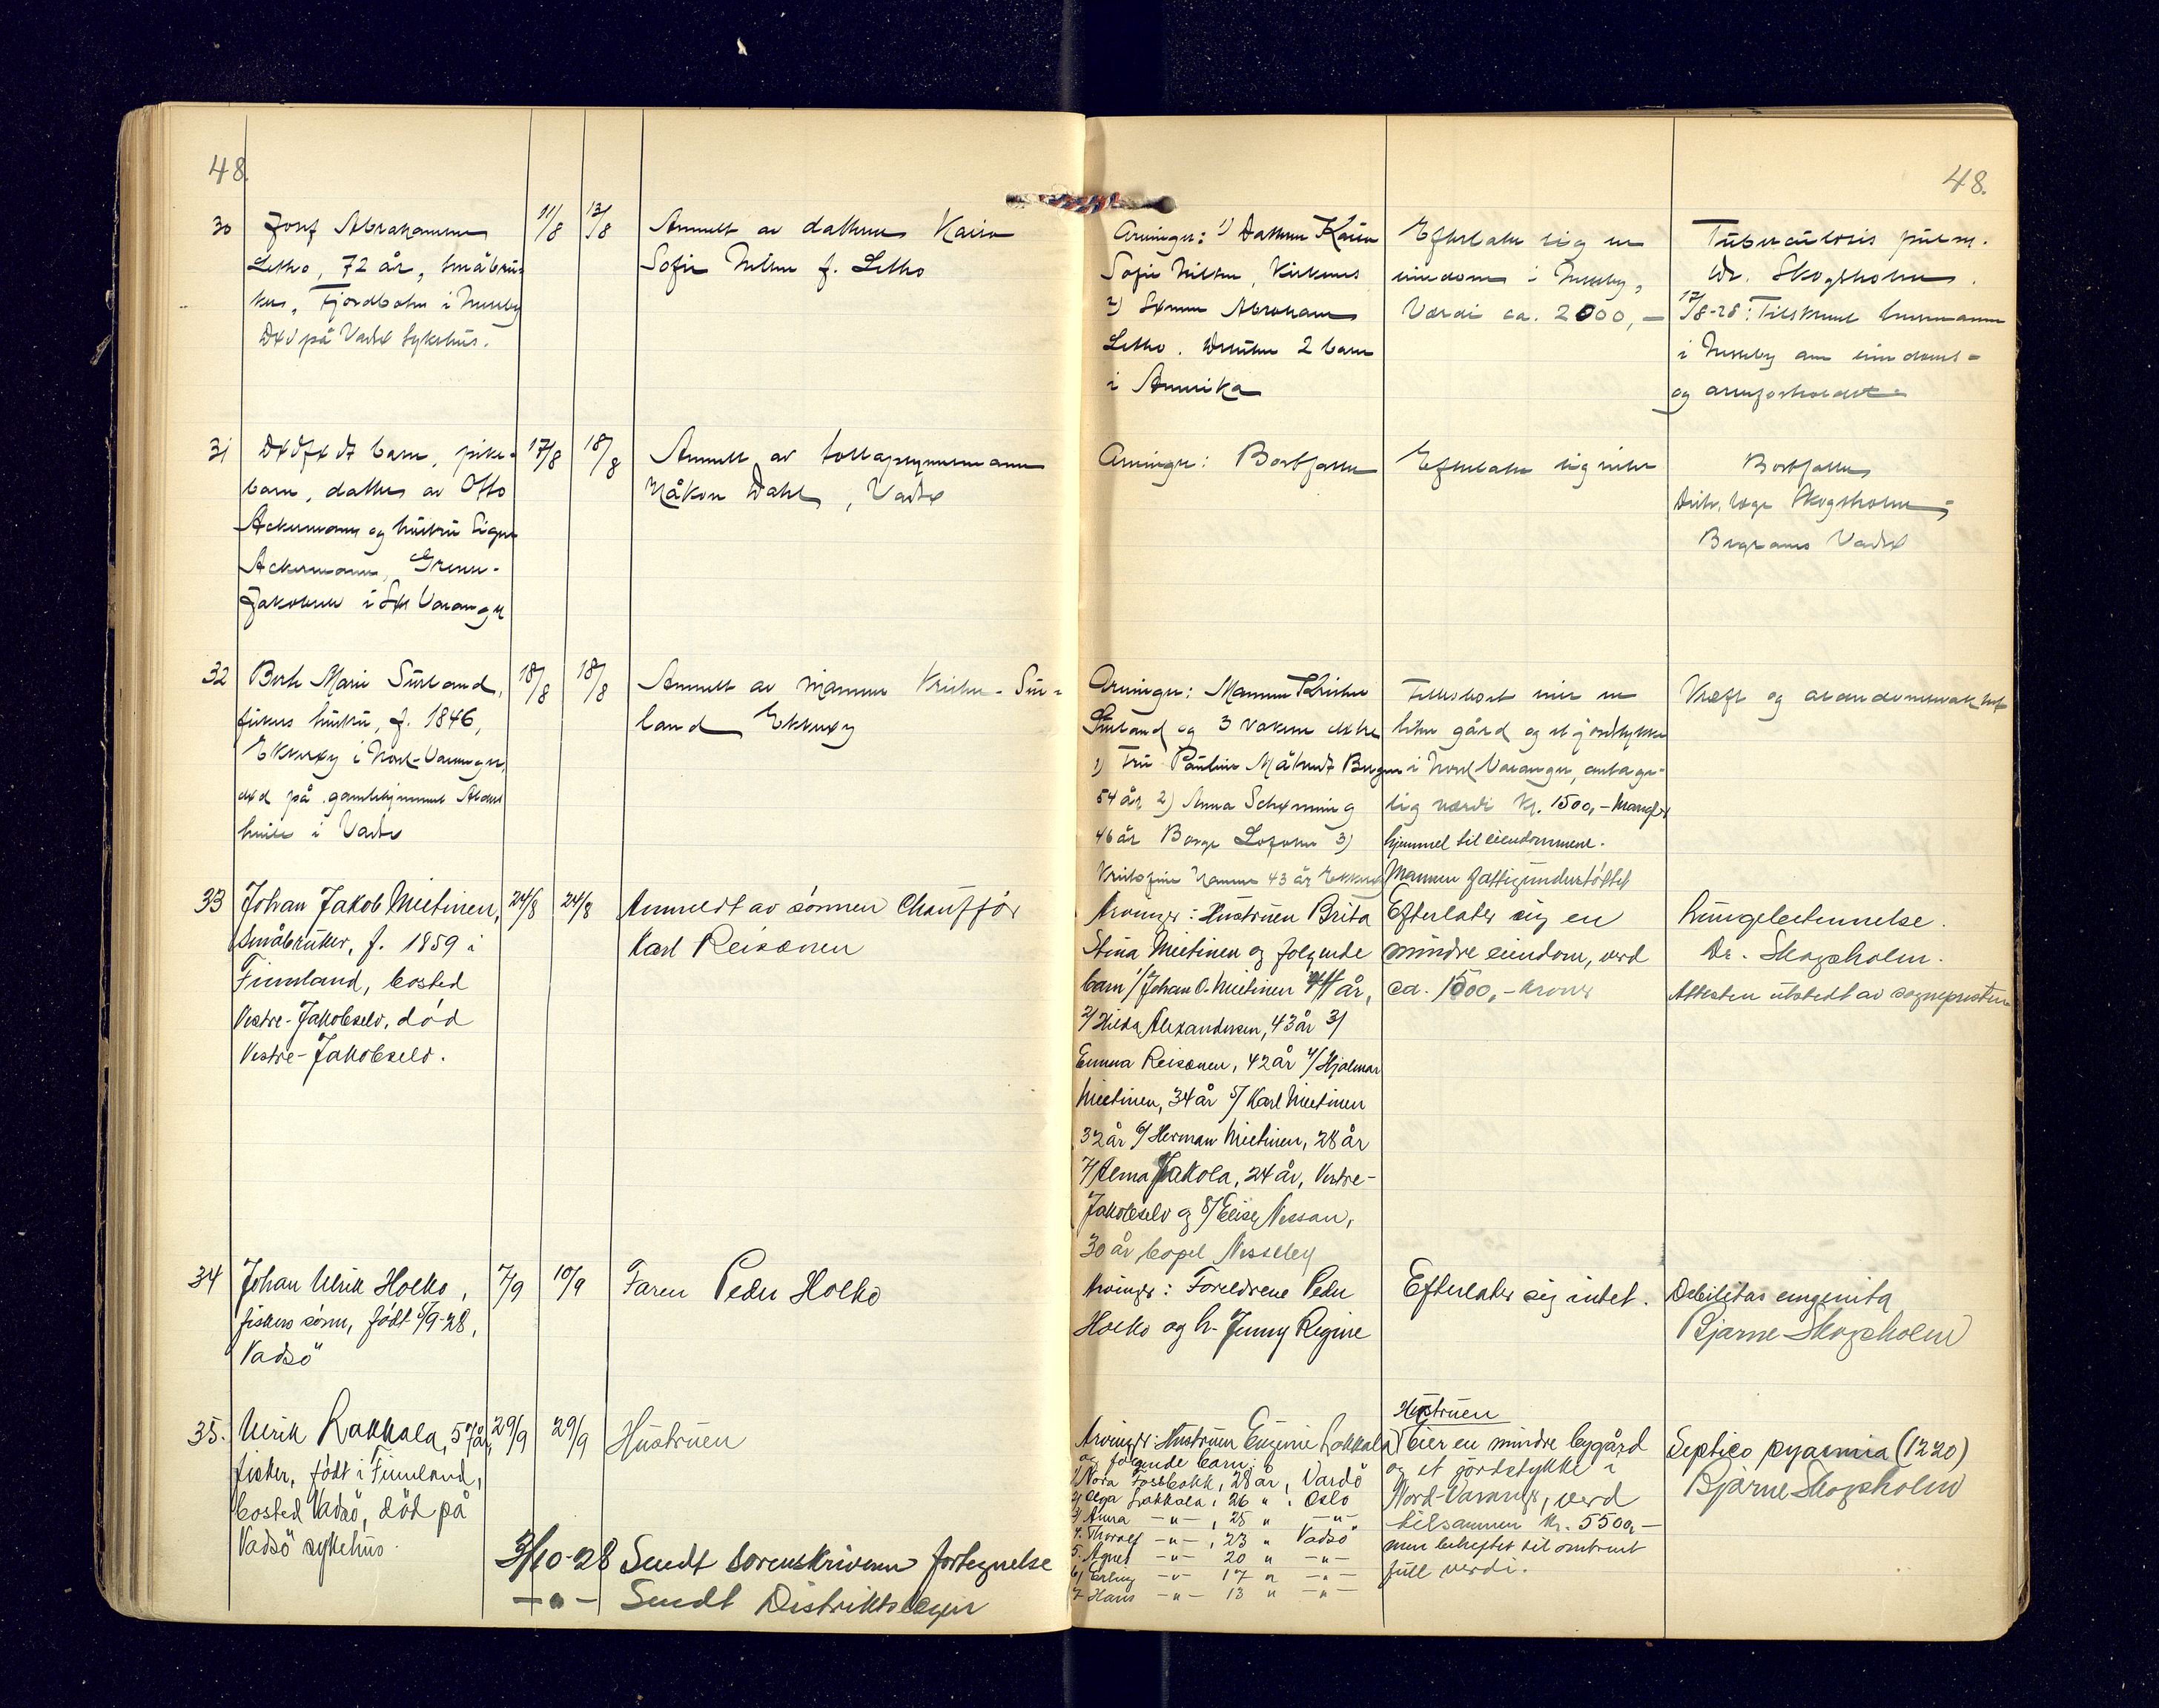 48.
48.
30 Josef Abrahamsen 11/8 13/8 Anmeldt av datteren Kaisa
Letho, 72 år, småbru- Sofie Nilsen f. Letho
ker, Fjordbotn i Nesseby
Død på Vadsø Sykehus.
Arvinger: 1) Datteren Kaisa
Sofie Nilsen, Kirkenes
2) Sønnen Abraham
Letho. Desuten 2 barn
i Amerika
Efterlater sig en
eiendom i Nesseby,
Værdi ca. 2000,—
Tuberculosis pulm.
Dr. Skogsholm.
17/8-28: Tilskrevet lensmannen
i Nesseby om eiendoms-
og arveforholdet
31 Dødfødt barn, pike- 17/8 18/8 Anmeldt av
barn, datter av Otto Håkon Dahl, Vadsø
Ackermann og hustru Signe
Ackermann, Grense-
Jakobselv i Sør Varanger
Arvinger: Bortfaller
Efterlater sig intet
Bortfaller
Distr. læge Skogsholm
Begraves Vadsø
32 Berth Marie Surland, 18/8 18/8 Anmeldt av mannen Kristen Sur-
fiskers hustru, f. 1846, land Ekkerøy
Ekkerøy i Nord-Varanger,
død på gamlehjemmet Aldershvile
i Vadsø
Arvinger: Mannen Kristen
Surland og 3 voksne døtre
1) Fru Pauline Bergen
54 år 2) Anna Schønning
46 år Borge Lofoten 3)
43 år Ekkerøy
Felleseiet eier en
liten gård og et jordstykke
i Nord Varanger, antage-
lig værdi kr. 1500,— Mangler
hjemmel til eiendommene.
Mannen fattigunderstøttet
Kreft og alderdomssvakhet
33 Johan Jakob Mietinen, 24/8 24/8 Anmeldt av sønnen Chauffør
Småbruker, f. 1859 i Karl Reisænen
Finnland, bosted
Vestre-Jakobselv, død
Vestre-Jakobselv.
Arvinger: Hustruen Brita
Stina Mietinen og følgende
barn 1/ Johan O. Mietinen 44 år,
2/ Hilda Alexandersen, 43 år 3/
Emma Reisænen, 42 år 4/ Hjalmar
Mietinen, 34 år 5/ Karl Mietinen
32 år 6/ Herman Mietinen, 28 år
7/ Alma Jakola, 24 år, Vestre-
Jakobselv og 8/ Elise Nessan,
30 år bopel Nesseby
Efterlater sig en
mindre eiendom, verd
ca. 1500,- kroner
Lungebetennelse.
Dr. Skogsholm.
Attesten utstedt av sognepresten
34 Johan Ulrik Holko, 7/9 10/9 Faren Peder Holko
fiskers sønn, født 5/9-28,
Vadsö
Arvinger: Foreldrene Peder
Holko og h. Jenny Regine
Efterlater sig intet.
Debilitas congenita
Bjarne Skogsholm
35. Ulrik Lakkala, 57 år, 29/9 29/9 Hustruen
fisker, født i Finnland,
bosted Vadsö, död på
Vadsö sykehus.
3/10-28 Sendt sorenskriveren fortegnelse
—"— Sendt Distriktslegen
Arvinger: Hustruen Eugenie Lakkala
og følgende barn:
1) Nora Fossbakk, 28 år, Vardö
2) Olga Lakkala, 26 " , Oslo
3) Anna —"—, 25 " —"—
4. Thoralf —"—, 23 " Vadsö
5. Agnes —"— 20 " —"—
6) Erling —"— 17 " —"—
7. Hans —"— 13 " —"—
Hustruen
eier en mindre bygård
og et jordstykke i
Nord-Varanger, verd
tilsammen kr. 5500,—
men beheftet til omtrent
full verdi.
Septico pyaemia (1220)
Bjarne Skogsholm